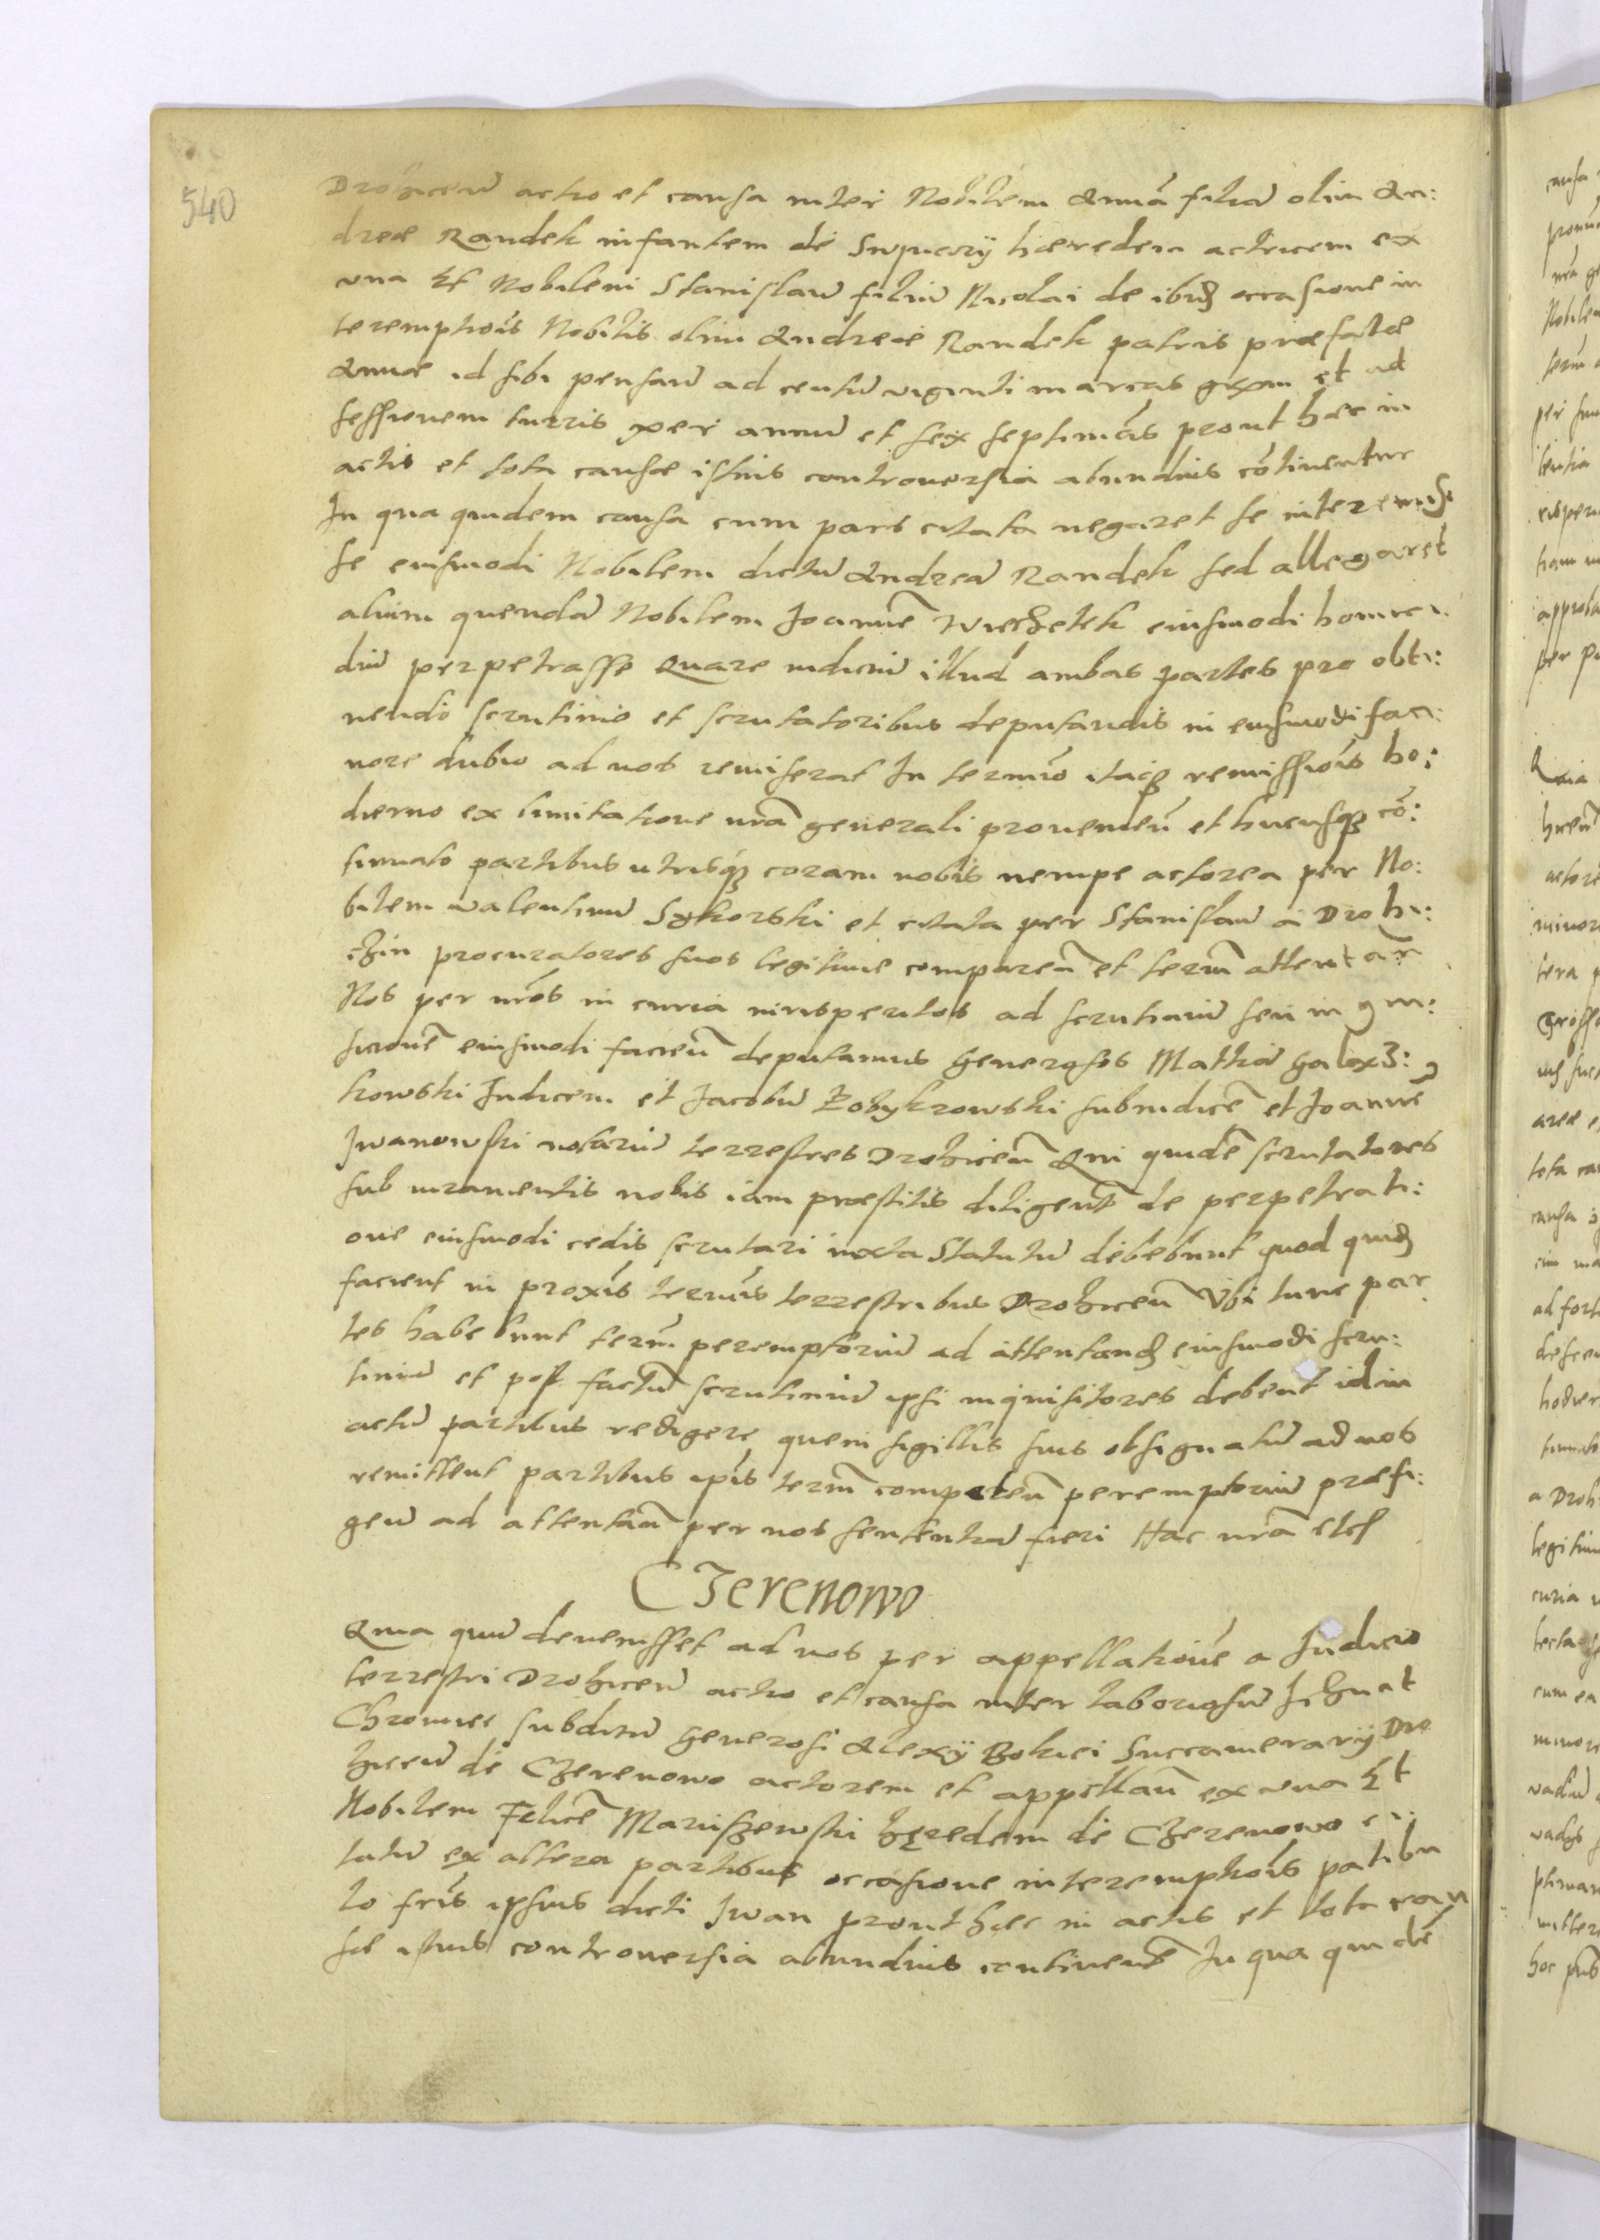 540
Drohicen̄ actio et causa inter Nobilem Annā filiā olim An:
dreæ Randek infantem de Snpucÿ hæredem actricem ex
vna Et Nobilem Stanislaū filiū Nicolai de ibid occasione in
teremptiōis Nobilis olim Andreæ Randek patris præfatæ
Annæ id sibi pensan̄ ad centū viginti marcas gṙom et ad
sessionem turris per annū et sex septimās prout hæc in
actis et tota causæ istius controuersia abundius cōtinentur
In qua quidem causa cum pars citata negaret se interemis
se eiusmodi Nobilem dictū Andreā Randek sed allegaret
alium quendā Nobilem Joannē Wierzetek eiusmodi homici
diū perpetrasse Quare iudiciū illud ambas partes pro obti:
nendo scrutinio et scrutatoribus deputandis in eiusmodi faci:
nore dubio ad nos remiserat In termīo itaq remissiōis ho:
dierno ex limitatione nrā generali prouenien̄ et hucusq cō:
tinuato partibus vtrisq coram nobis nempe actorea per No:
bilem Valentinū Sykorski et citata per Stanislaū a Drohi:
czin procuratores suos legitime comparen̄ et termī attentan̄
Nos per nrōs in curia iurisperitos ad scrutiniū seu inqui:
sicionē eiusmodi facien̄ deputamus Generosos Mathiā Galąz:
kowski Judicem et Jacobū Kobykrowski subiudicē et Joannē
Jwanowski notariū terrestres Drohicen̄ Qui quidē scrutatores
sub iuramentis nobis iam præstitis diligent̄ de perpetrati:
one eiusmodi cedis scrutari iuxta Statutū debebunt quod quid
facient in proxīs termīs terrestribus Drohicen̄ Vbi tunc par
tes habebunt termī peremptoriū ad attentand eiusmodi scru:
tiniū et post factū scrutiniū ipsi inquisitores debent id in
actū partibus redigere quem sigillis suis obsignatū ad nos
remittent partibus ipīs termī competen̄ peremptoriū præfi:
gen̄ ad attentan̄ per nos sententiā fieri Hac nrā etc
Czerenowo
Quia quū deuenisset ad nos per appellationē a Judicio
terrestri Drohicen̄ actio et causa inter laboriosū Jhnat
Chromiec subditū Generosi Alexÿ Bokiei Succamerarÿ Dro
hicen̄ de Czerenowo actorem et appellan̄ ex vna Et
Nobilem Felicē Maruszewski hęredem de Czerenowo ci
tatū ex altera partibus occasione interemptiōis patibu
lo frīs ipsius dicti Jwan prout hæc in actis et tota cau
sæ istius controuersia abundius continent̄ In qua quidē